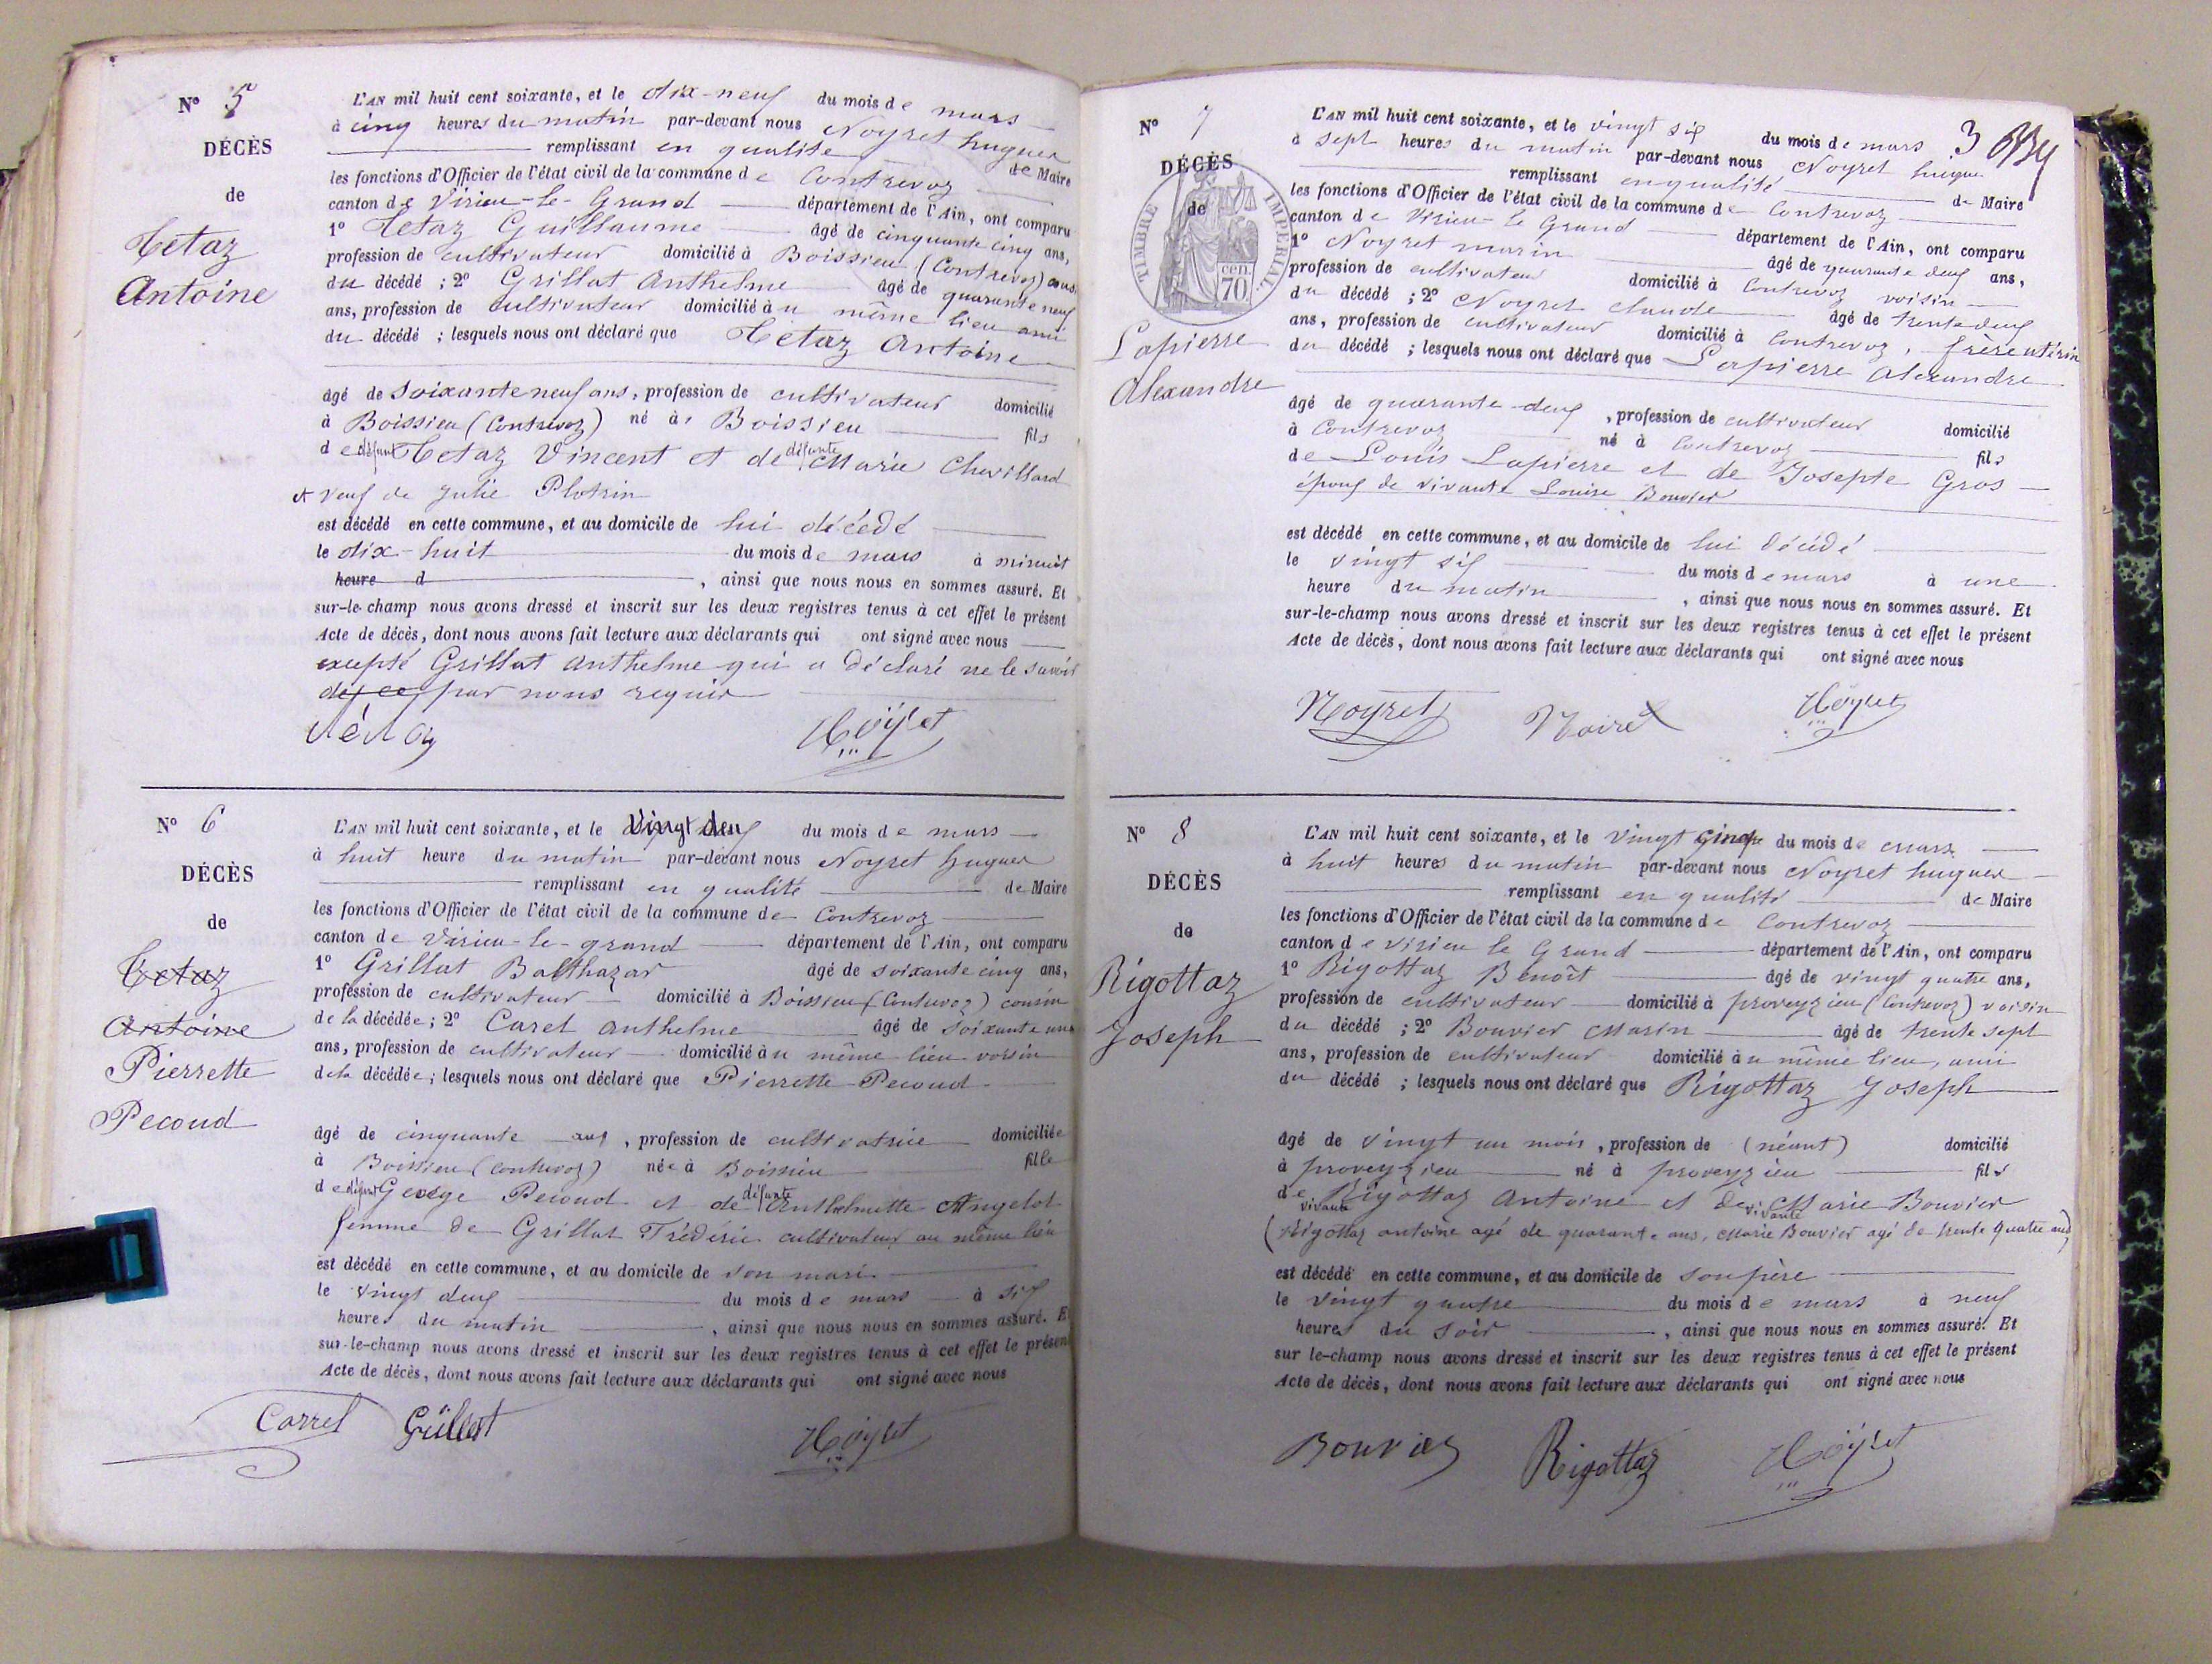 N° 5
DÉCÈS
de
Tétaz
Antoine
L'AN mil huit cent soixante, et le dix-neuf du mois de mars
à cinq heures du matin par-devant nous Noyret hugues
remplissant en qualité de Maire
les fonctions d'Officier de l'état civil de la commune de Contrevoz
canton de Virieu-le-Grand département de l'Ain, ont comparu
1° Tétaz Guillaume âgé de cinquante cinq ans,
profession de cultivateur domicilié à Boissieu (Contrevoz)
du décédé ; 2° Grillat Anthelme âgé de quarante neuf
ans, profession de cultivateur domicilié au même lieu ami
du décédé ; lesquels nous ont déclaré que Tétaz Antoine
âgé de soixante neuf ans, profession de cultivateur domicilié
à Boissieu (Contrevoz) né à Boissieu fils
de défunt Tétaz Vincent et de défunte Marie Chevillard
et veuf de Julie Plotrin
est décédé en cette commune, et au domicile de lui décédé
le dix-huit du mois de mars à minuit
heure d , ainsi que nous nous en sommes assuré. Et
sur-le-champ nous avons dressé et inscrit sur les deux registres tenus à cet effet le présent
Acte de décès, dont nous avons fait lecture aux déclarants qui ont signé avec nous
excepté Grillat Anthelme qui a déclaré ne le savoir
de ce par nous requis
Noyret
N° 6
DÉCÈS
de
Tétaz
Antoine
Pierrette
Pecoud
L'AN mil huit cent soixante, et le vingt deux du mois de mars
à huit heure du matin par-devant nous Noyret hugues
remplissant en qualité de Maire
les fonctions d'Officier de l'état civil de la commune de Contrevoz
canton de Virieu-le-grand département de l'Ain, ont comparu
1° Grillat Balthazar âgé de soixante cinq ans,
profession de cultivateur domicilié à Boissieu (Contrevoz) cousin
de la décédée ; 2° Carel Anthelme âgé de soixante un
ans, profession de cultivateur domicilié au même lieu voisin
de la décédée ; lesquels nous ont déclaré que Pierrette Pecoud
âgé de cinquante ans, profession de cultivatrice domiciliée
à Boissieu (Contrevoz) née à Boissieu fille
de défunt George Pecoud et de défunte Anthelmette Angelot
femme de Grillat Frédéric cultivateur au même lieu
est décédé en cette commune, et au domicile de son mari
le vingt deux du mois de mars à six
heures du matin , ainsi que nous nous en sommes assuré. E
sur-le-champ nous avons dressé et inscrit sur les deux registres tenus à cet effet le présen
Acte de décès, dont nous avons fait lecture aux déclarants qui ont signé avec nous
Carrel Grillat Noyret
3
N° 7
DÉCÈS
de
TIMBRE IMPÉRIAL
cen.
70
Lapierre
Alexandre
L'AN mil huit cent soixante, et le vingt six du mois de mars
à sept heures du matin par-devant nous Noyret hugues
remplissant en qualité de Maire
les fonctions d'Officier de l'état civil de la commune de Contrevoz
canton de Virieu-le Grand département de l'Ain, ont comparu
1° Noyret marin âgé de quarante deux ans,
profession de cultivateur domicilié à Contrevoz voisin
du décédé ; 2° Noyret claude âgé de trente deux
ans, profession de cultivateur domicilié à Contrevoz, frère utérin
du décédé ; lesquels nous ont déclaré que Lapierre Alexandre
âgé de quarante-deux , profession de cultivateur domicilié
à Contrevoz né à Contrevoz fils
de Louis Lapierre et de Josepte Gros
époux de vivante Louise Bouvier
est décédé en cette commune, et au domicile de lui décédé
le vingt six du mois de mars à une
heure du matin , ainsi que nous nous en sommes assuré. Et
sur-le-champ nous avons dressé et inscrit sur les deux registres tenus à cet effet le présent
Acte de décès, dont nous avons fait lecture aux déclarants qui ont signé avec nous
Noyret Noiret Noyret
N° 8
DÉCÈS
de
Rigottaz
Joseph
L'AN mil huit cent soixante, et le vingt cinq du mois de mars
à huit heures du matin par-devant nous Noyret hugues
remplissant en qualité de Maire
les fonctions d'Officier de l'état civil de la commune de Contrevoz
canton de virieu le Grand département de l'Ain, ont comparu
1° Rigottaz Benoît âgé de vingt quatre ans,
profession de cultivateur domicilié à proveyzieu (Contrevoz) voisin
du décédé ; 2° Bouvier Marin âgé de trente sept
ans, profession de cultivateur domicilié au même lieu, ami
du décédé ; lesquels nous ont déclaré que Rigottaz Joseph
âgé de vingt un mois, profession de (néant) domicilié
à proveyzieu né à proveyzieu fils
de vivant Rigottaz Antoine et de vivante Marie Bouvier
(Rigottaz antoine agé de quarante ans, Marie Bouvier agé de trente quatre ans)
est décédé en cette commune, et au domicile de son père
le vingt quatre du mois de mars à neuf
heures du soir , ainsi que nous nous en sommes assuré. Et
sur le-champ nous avons dressé et inscrit sur les deux registres tenus à cet effet le présent
Acte de décès, dont nous avons fait lecture aux déclarants qui ont signé avec nous
Bouvier Rigottaz Noyret